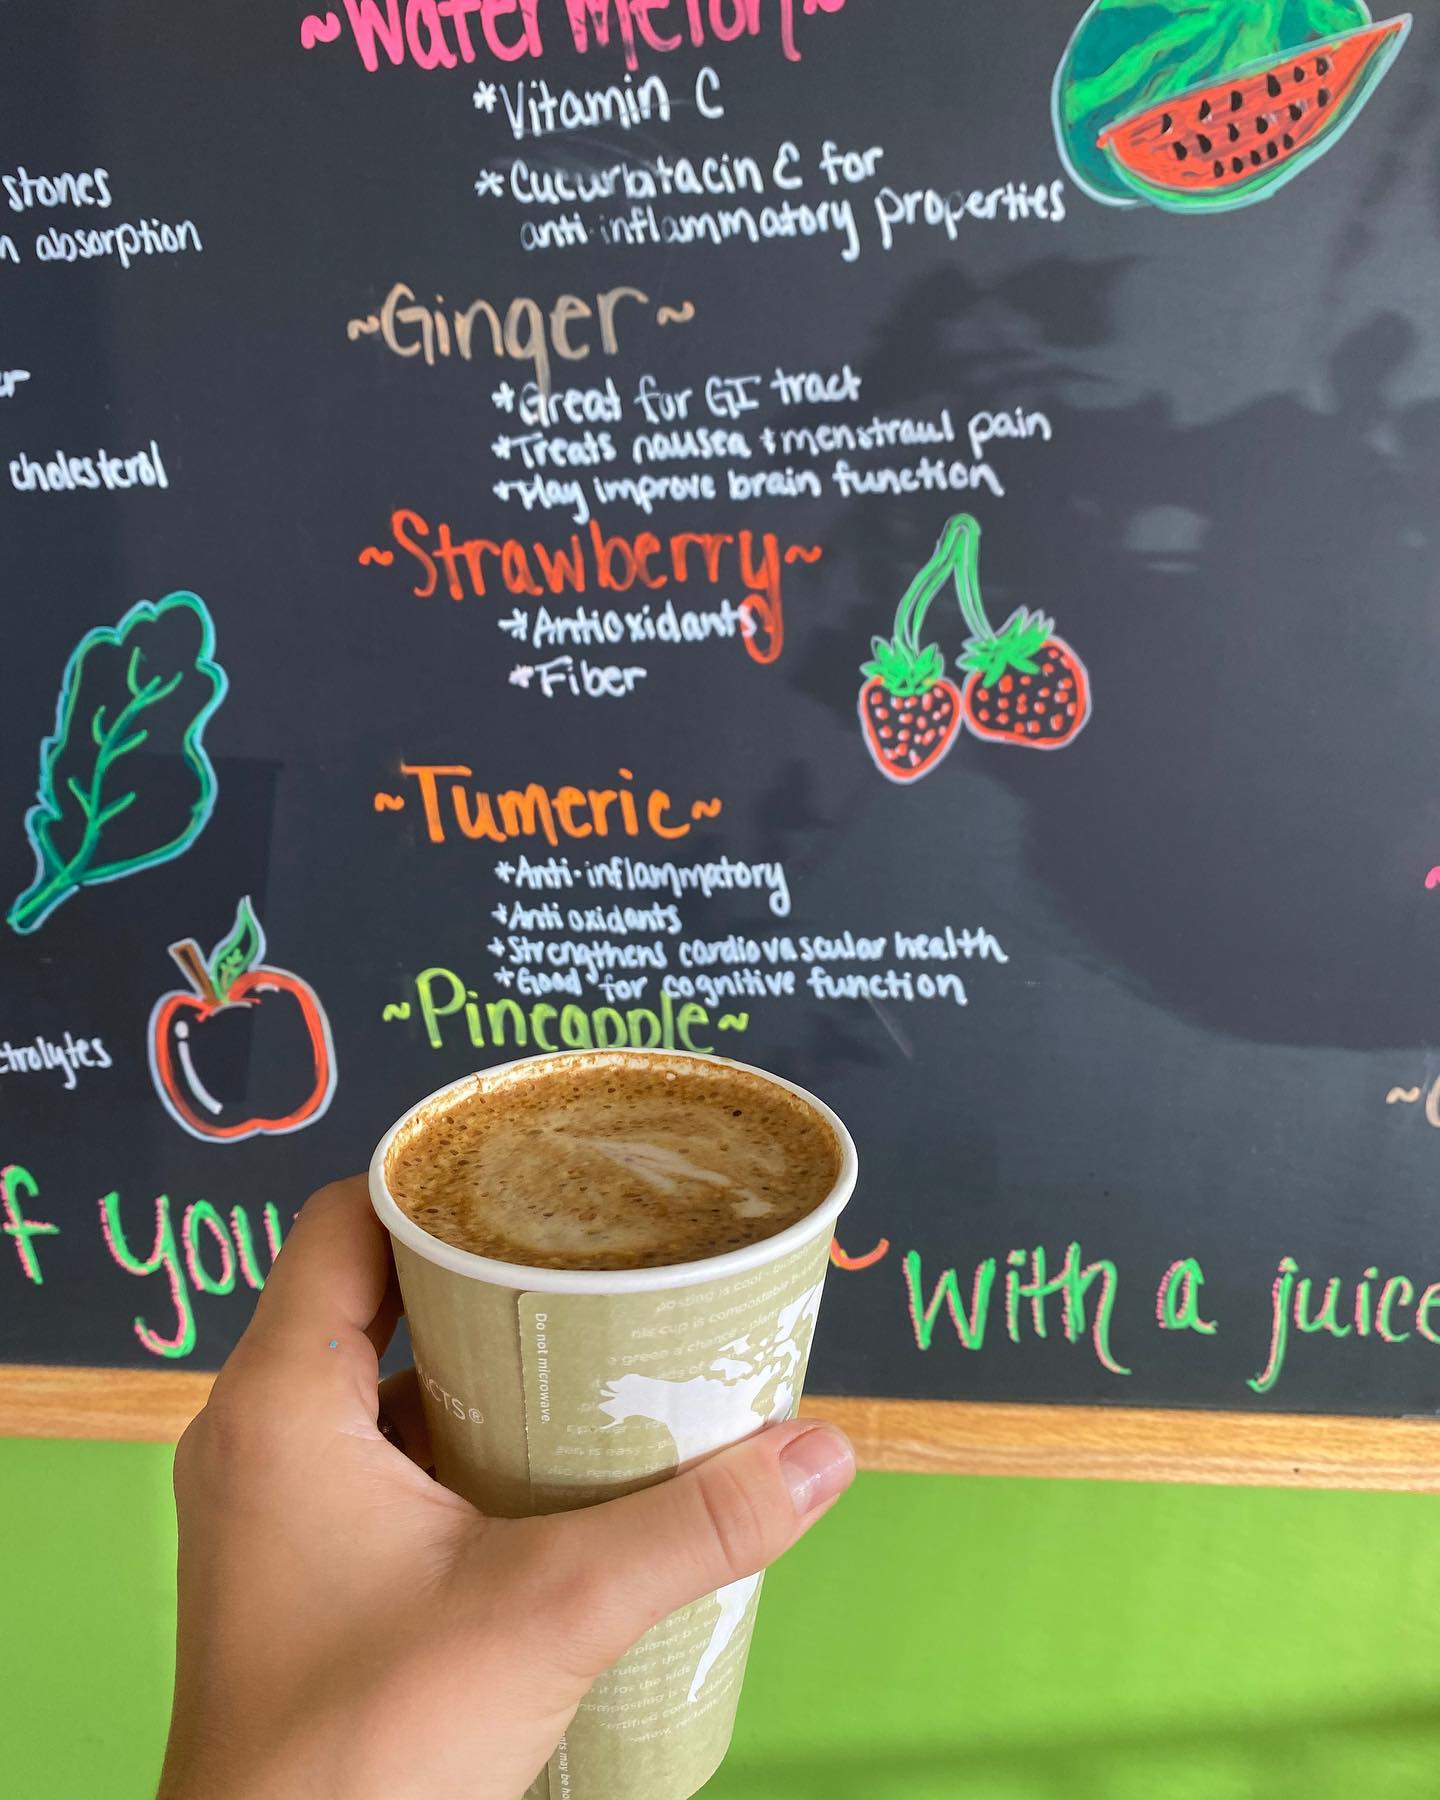 ~Watermelon~
*Vitamin C
*Cucurbitacin E for
anti-inflammatory properties
stones
absorption
~Ginger~
*Great for GI tract
*Treats nausea + menstraul pain
*May improve brain function
cholesterol
~Strawberry~
*Antioxidants
*Fiber
~Tumeric~
*Anti-inflammatory
*Antioxidants
*Strengthens cardiovascular health
*Good for cognitive function
~Pineapple~
trolytes
f you
with a juice
Do not microwave.
CTS®